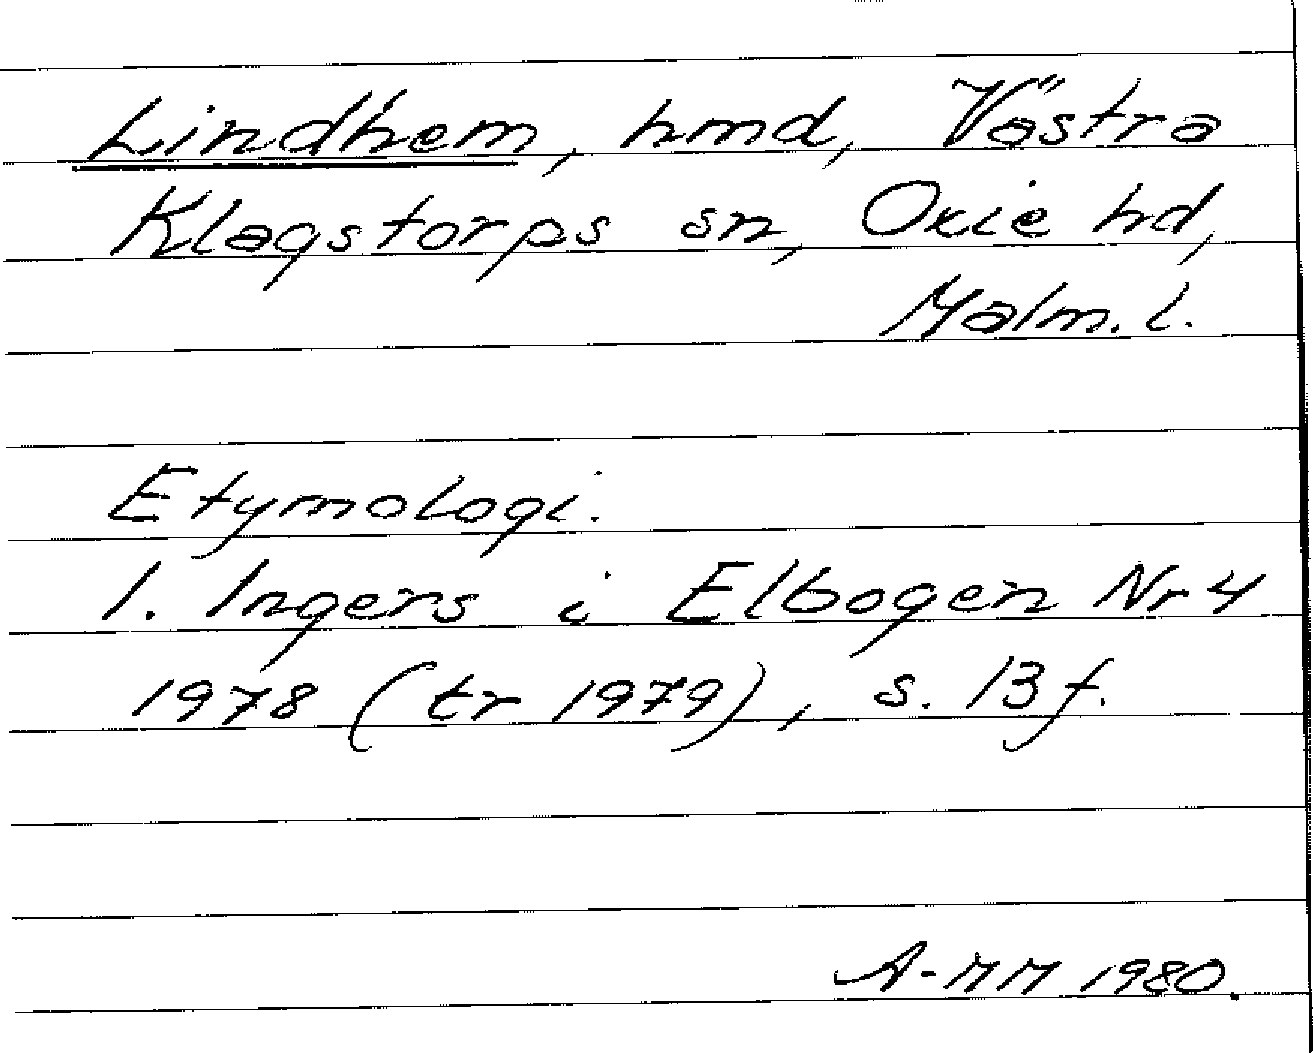 Lindhem, hmd, Västra
Klagstorps sn, Oxie hd,
Malm. l.
Etymologi.
I. Ingers i Elbogen Nr 4
1978 (tr 1979), s. 13 f.
A-MM 1980.